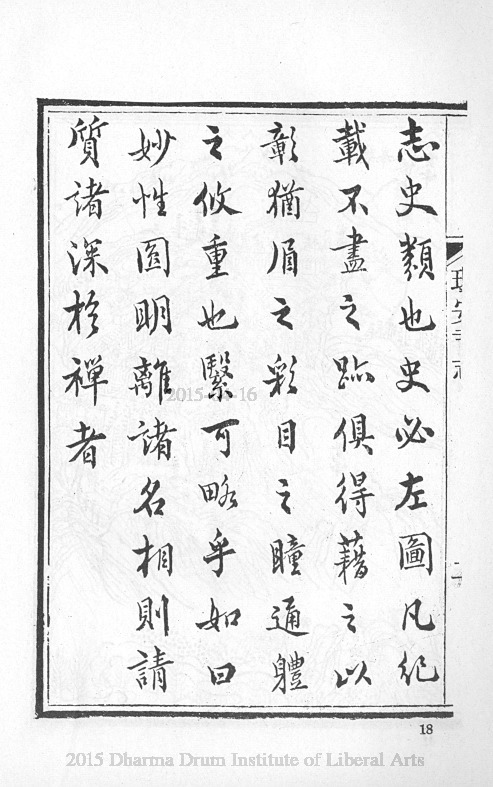 志史類也史必左圖凡紀
載不盡之跡俱得藉之以
彰猶眉之彩目之瞳通體
之攸重也繄可略乎如曰
妙性圓明離諸名相則請
質諸深於禪者
18
2015-04-16
2015 Dharma Drum Institute of Liberal Arts